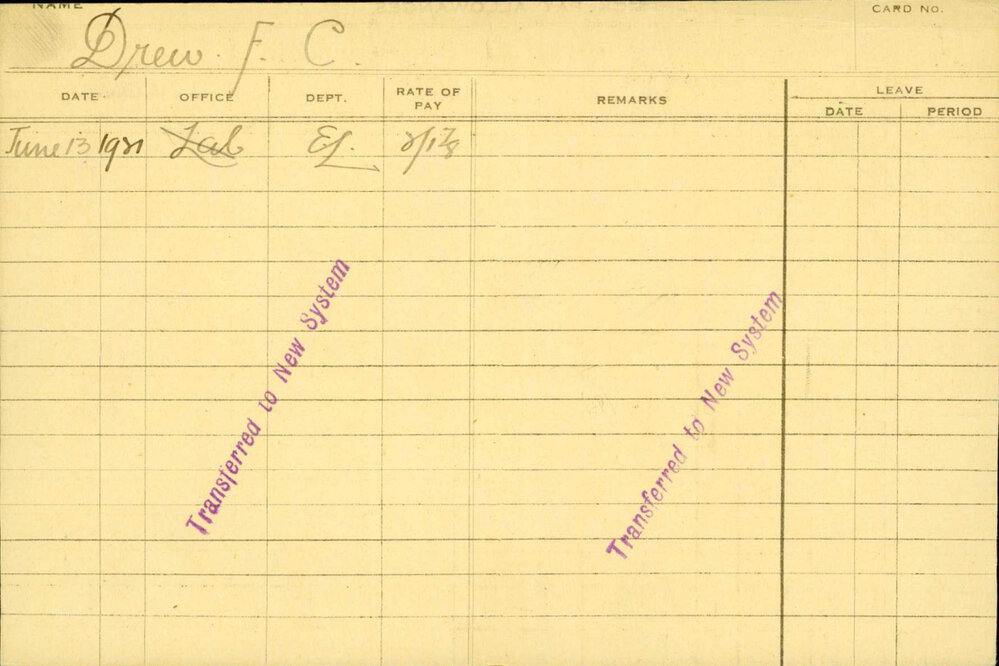 NAME
CARD NO.
Drew. F. C.
DATE OFFICE DEPT. RATE OF PAY REMARKS LEAVE
DATE PERIOD
June 13 1921 Lab El.
Transferred to New System
Transferred to New System